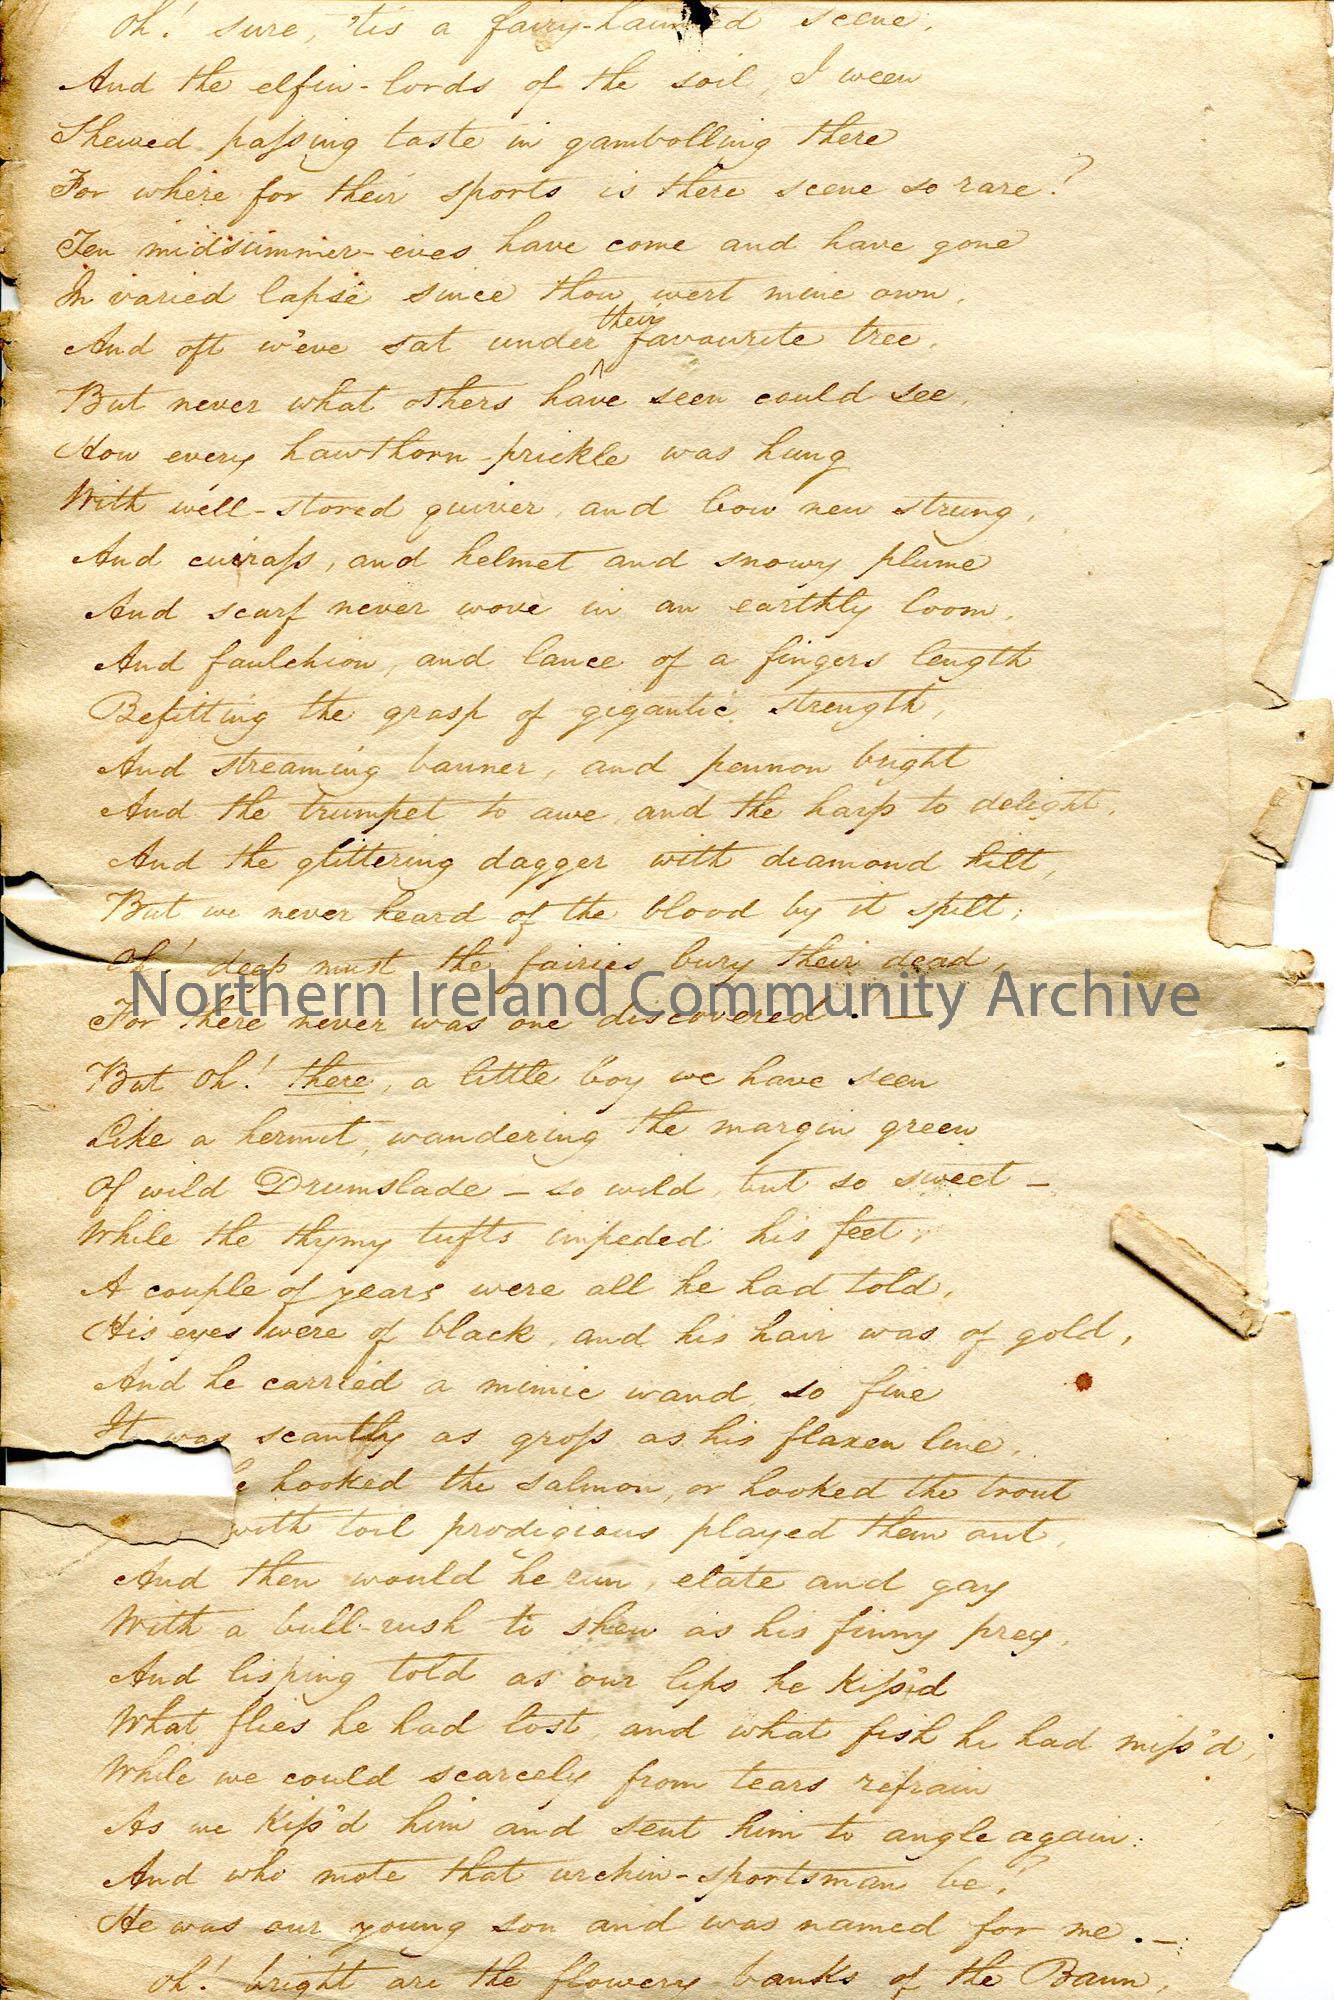 Oh! sure, 'tis a fairy-haunted scene,
And the elfin-lords of the soil, I ween
Shewed paſsing taste in gambolling there
For where for their sports is there scene so rare?
Ten midsummer-eves have come and have gone
In varied lapse since thou wert mine own,
And oft w'eve sat under their favourite tree,
But never what others have seen could see,
How every hawthorn-prickle was hung
With well-stored quiver, and bow new strung,
And cuiraſs, and helmet and snowy plume
And scarf never wove in an earthly loom,
And faulchion, and lance of a fingers length
Befitting the grasp of gigantic strength,
And streaming banner, and pennon bright
And the trumpet to awe, and the harp to delight,
And the glittering dagger with diamond hilt,
But we never heard of the blood by it spilt;
Oh! deep must the fairies bury their dead,
Northern Ireland Community Archive
For there never was one discovered. —
But Oh! there, a little boy we have seen
Like a hermit, wandering the margin green
Of wild Drumslade – so wild, but so sweet –
While the thymy tufts impeded his feet;
A couple of years were all he had told,
His eyes were of black, and his hair was of gold,
And he carried a mimic wand, so fine
It was scantly as groſs as his flaxen line,
he hooked the salmon, or hooked the trout
with toil prodigious played them out,
And then would he run, elate and gay
With a bull-rush to shew as his finny prey,
And lisping told as our lips he kiſs'd
What flies he had lost, and what fish he had miſs'd,
While we could scarcely from tears refrain
As we kiſs'd him and sent him to angle again:
And who mote that urchin-sportsman be?
He was our young son and was named for me. –
Oh! bright are the flowery banks of the Bann,